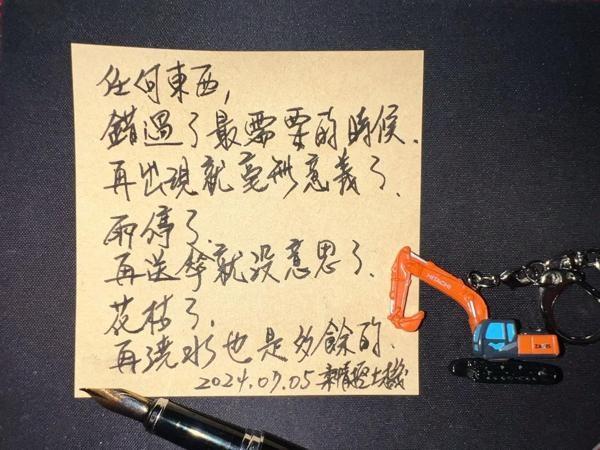 任何東西，
錯過了最需要的時候.
再出現就毫無意義了.
雨停了.
再送傘就沒意思了.
花枯了.
再澆水也是多餘的.
2024.07.05
HITACHI